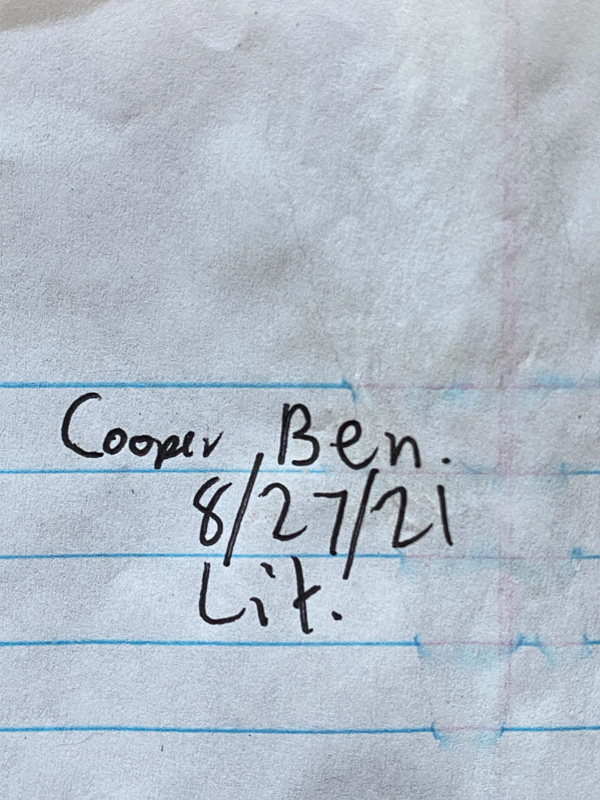 Cooper, Ben.
8/27/21
Lit.